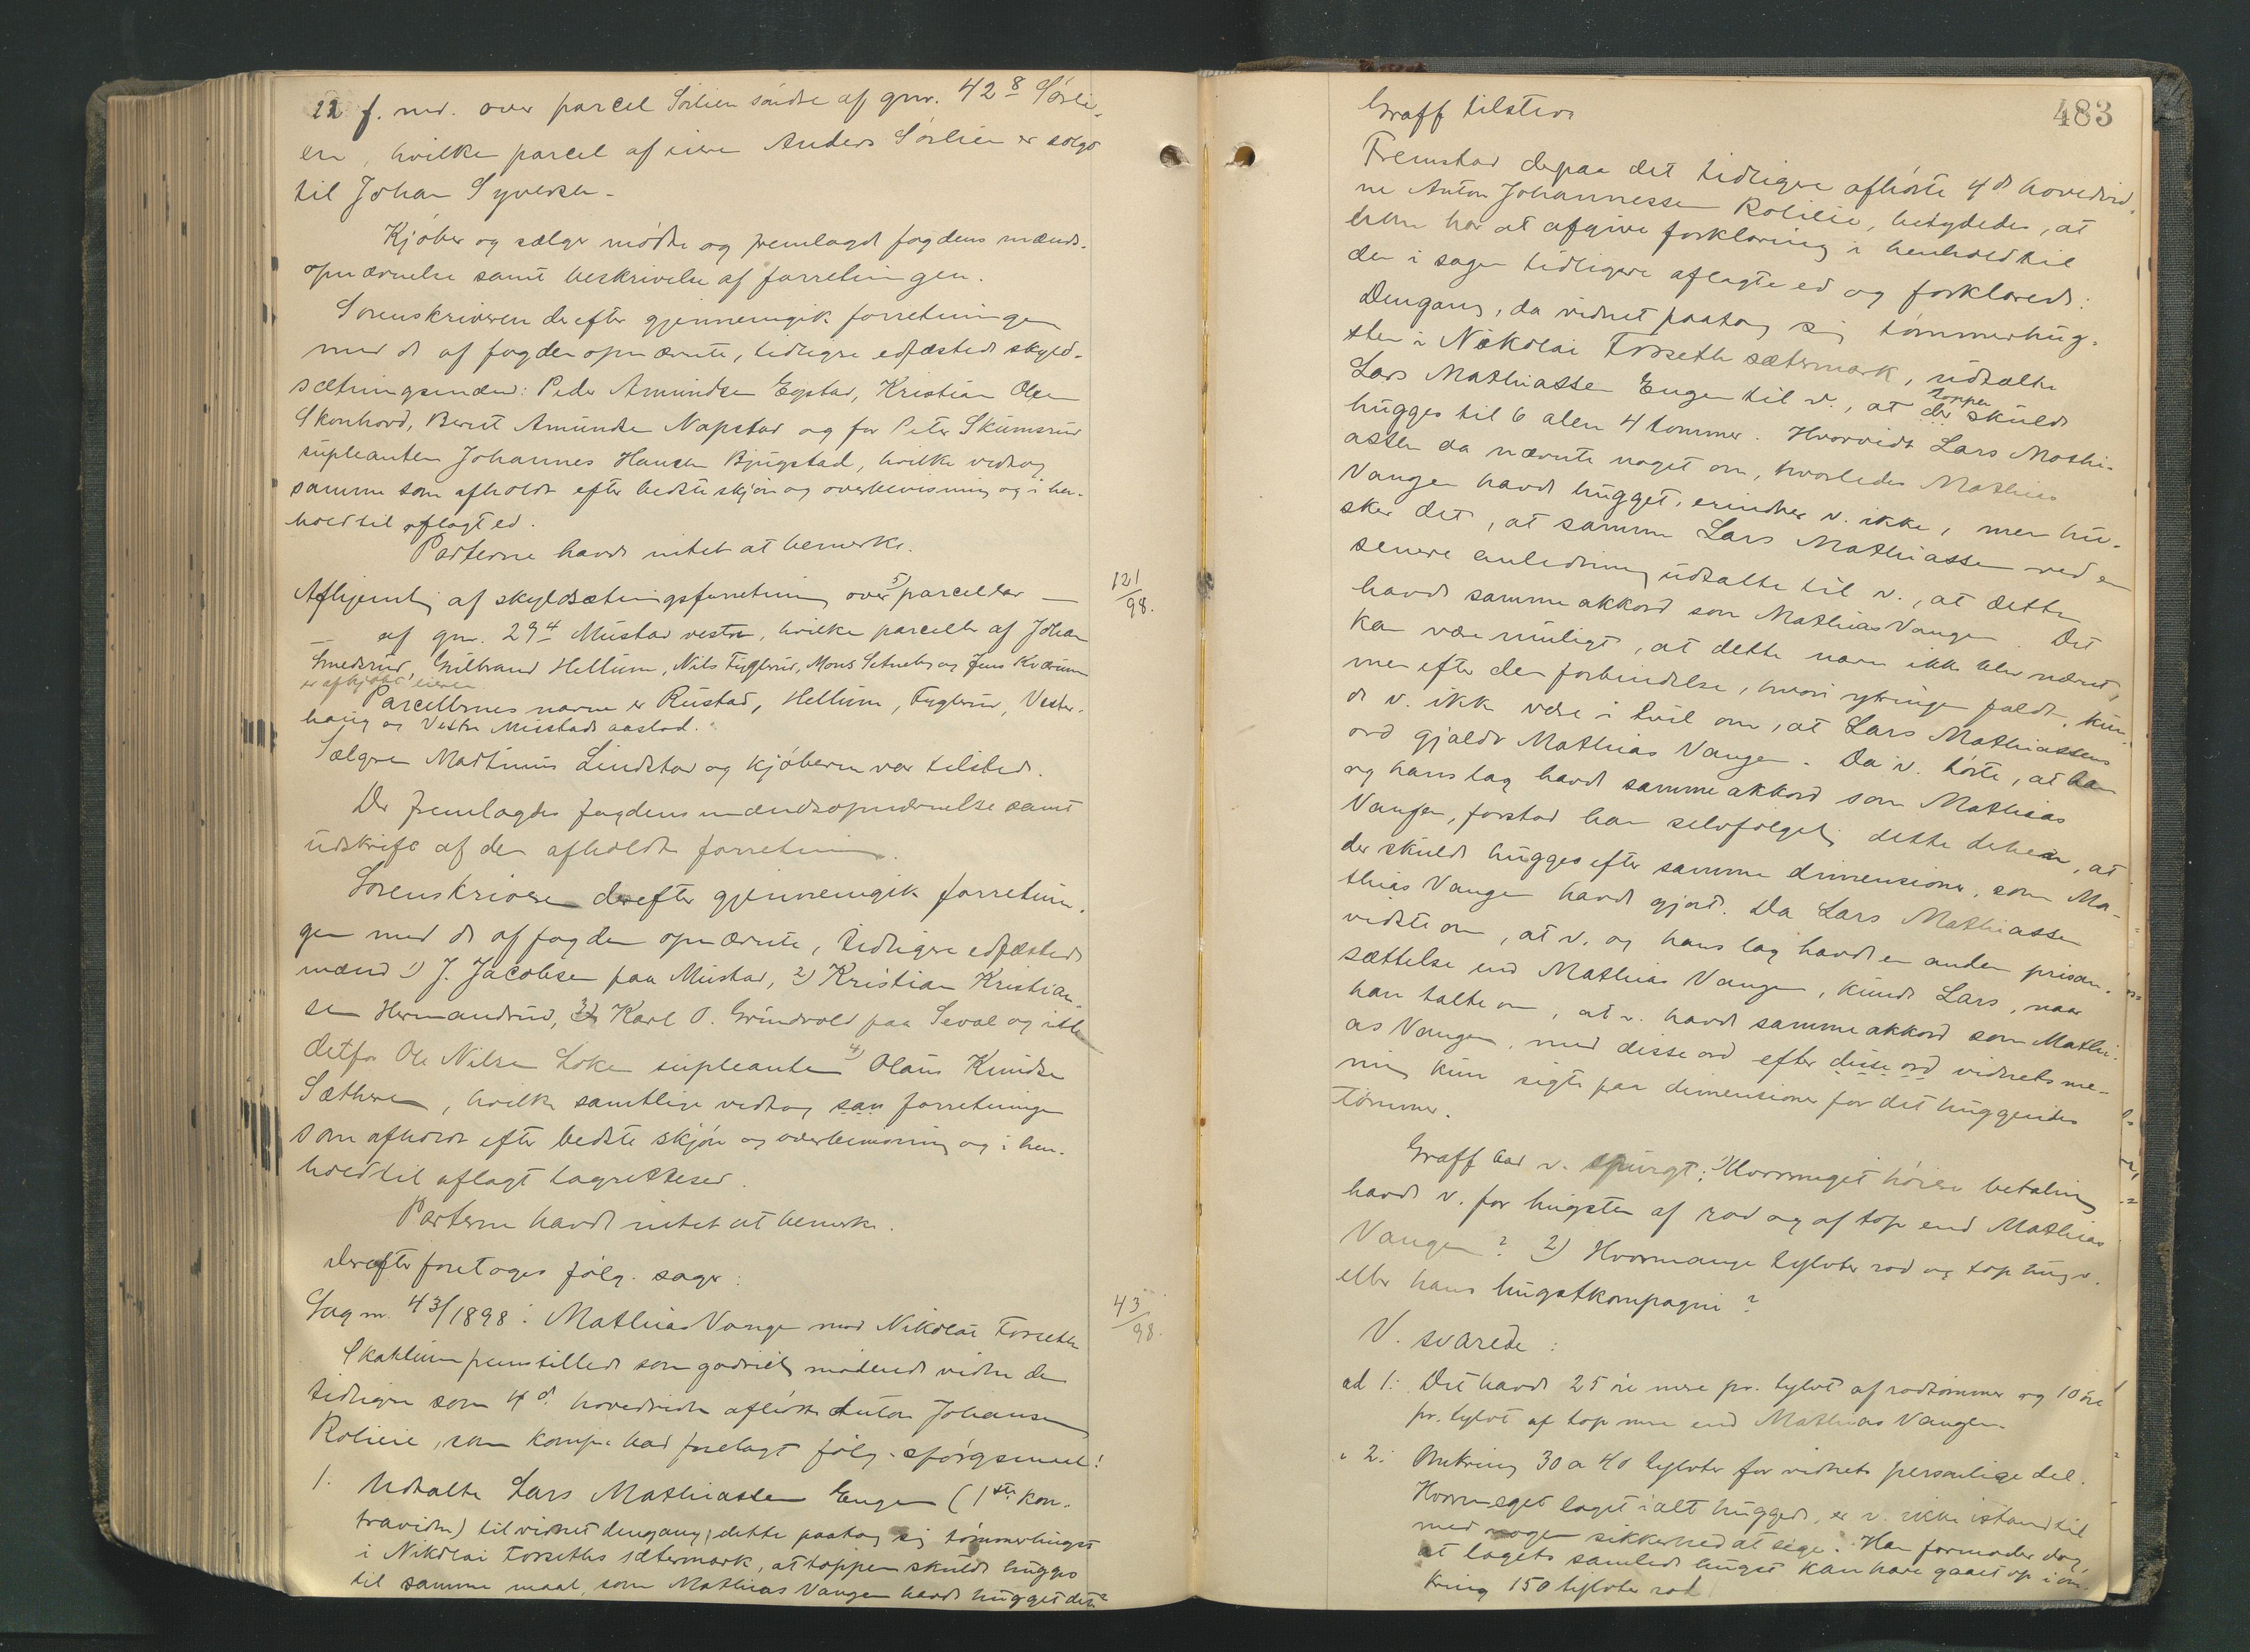 22 f. md. over parcel Sörlien söndre af gnr. 42 8 Sörli-
en, hvilken parcel af eieren Anders Sörlien er solgt
til Johan Syversen.
Kjöber og sælger mödte og fremlagde fogdens mænds-
opnævnelse samt beskrivelse af forretningen.
Sorenskriveren derefter gjennemgik forretningen
med de af fogden opnævnte, tidligere edfæstede skyld-
sætningsmænd: Peder Amundsen Egstad, Kristian Olsen
Skonhovd, Bernt Amundsen Napstad og for Peter Skumsrud
supleanten Johannes Hansen Bjugstad, hvilke vedtog
samme som afholdt efter bedste skjön og overbevisning og i hen-
hold til aflagt ed.
Parterne havde intet at bemerke.
121/98.
Afhjemling af skyldsætningsforretning over 5) parceller —
— af gnr. 29 4 Mustad vestre, hvilke parceller af Johan
Smedsrud, Gulbrand Hellum, Nils Fuglerud, Mons Sætneby og Jens Kværum
er afkjöbt eieren
Parcellernes navne er Rustad, Hellum, Fuglerud, Vester-
haug og Vestre Mustads aastad.
Sælgeren Martinus Lindstad og kjöberne var tilstede.
Der fremlagdes fogdens mændsopnævnelse samt
udskrift af den afholdte forretning.
Sorenskriveren derefter gjennemgik forretnin-
gen med de af fogden opnævnte, tidligere edfæstede
mænd 1) J. Jacobsen paa Mustad, 2) Kristian Kristian-
sen Hermandrud, 3) Karl O. Grundvold paa Seval og iste-
detfor Ole Nilsen Loken supleanten 4) Olaus Knudsen
Sætheren, hvilke samtlige vedtog san forretningen
som afholdt efter bedste skjön og overbevisning og i hen-
hold til aflagt lagretteed.
Parterne havde intet at bemerke.
Derefter foretoges fölg. sager:
43/98.
Sag nr. 43/1898: Mathias Vangen mod Nikolai Forseth
Skatlum fremstillede som godvilig mödende vidne den
tidligere som 4de hovedvidne afhörte Anton Johansen
Rolieie, som komp. bad forelagt fölg. spörgsmaal:
1. Udtalte Lars Mathiassen Engen (1ste kon-
travidne) til vidnet dengang, dette paatog sig tömmerhugst
i Nikolai Forseths sætermark, at toppen skulde hugges
til samme maal, som Mathias Vangen havde hugget det?
483
Graff tilstede
Fremstod derpaa det tidligere afhörte 4de hovedvid-
ne Anton Johannessen Rolieie, betydedes, at
han har at afgive forklaring i henhold til
den i sagen tidligere aflagte ed og forklarede:
Dengang, da vidnet paatog sig tömmerhug-
sten i Nikolai Forseths sætermark, udtalte
Lars Mathiassen Engen til v., at der toppen skulde
hugges til 6 alen 4 tommer. Hvorvidt Lars Mathi-
assen da nævnte noget om, hvorledes Mathias
Vangen havde hugget, erindrer v. ikke, men hu-
sker det, at samme Lars Mathiassen ved en
senere anledning udtalte til v., at dette
havde samme akkord som Mathias Vangen. Det
kan være muligt, at dette navn ikke blev nævnt,
men efter den forbindelse, hvori ytringen faldt, kun-
de v. ikke være i tvil om, at Lars Mathiassens
ord gjaldt Mathias Vangen. Da v. hörte, at han
og hans lag havde samme akkord som Mathias
Vangen, forstod han selvfölgelig dette derhen, at
der skulde hugges efter samme dimensioner, som Ma-
thias Vangen havde gjort. Da Lars Mathiassen
vidste om, at v. og hans lag havde en anden prisan-
sættelse end Mathias Vangen, kunde Lars, naar
han talte om, at v. havde samme akkord som Mathi-
as Vangen, med disse ord efter disse ord vidnets me-
ning kun sigte paa dimensioner for det huggendes
tömmer.
Graff bad v. spurgt: 1) Hvormeget höiere betaling
havde v. for hugsten af rod og af top end Mathias
Vangen? 2) Hvormange tylvter rod og top hug v.
eller hans hugstkompagni?
V. svarede:
ad 1: Det havde 25 öre mere pr. tylvt af rodtömmer og 10 öre
pr. tylvt af top mere end Mathias Vangen.
" 2: Omkring 30 a 40 tylvter for vidnets personlige del.
Hvormeget laget ialt huggede, er v. ikke istand til
med nogen sikkerhed at sige. Han formoder dog,
at lagets samlede hugst kan have gaaet op i om-
kring 150 tylvter rod